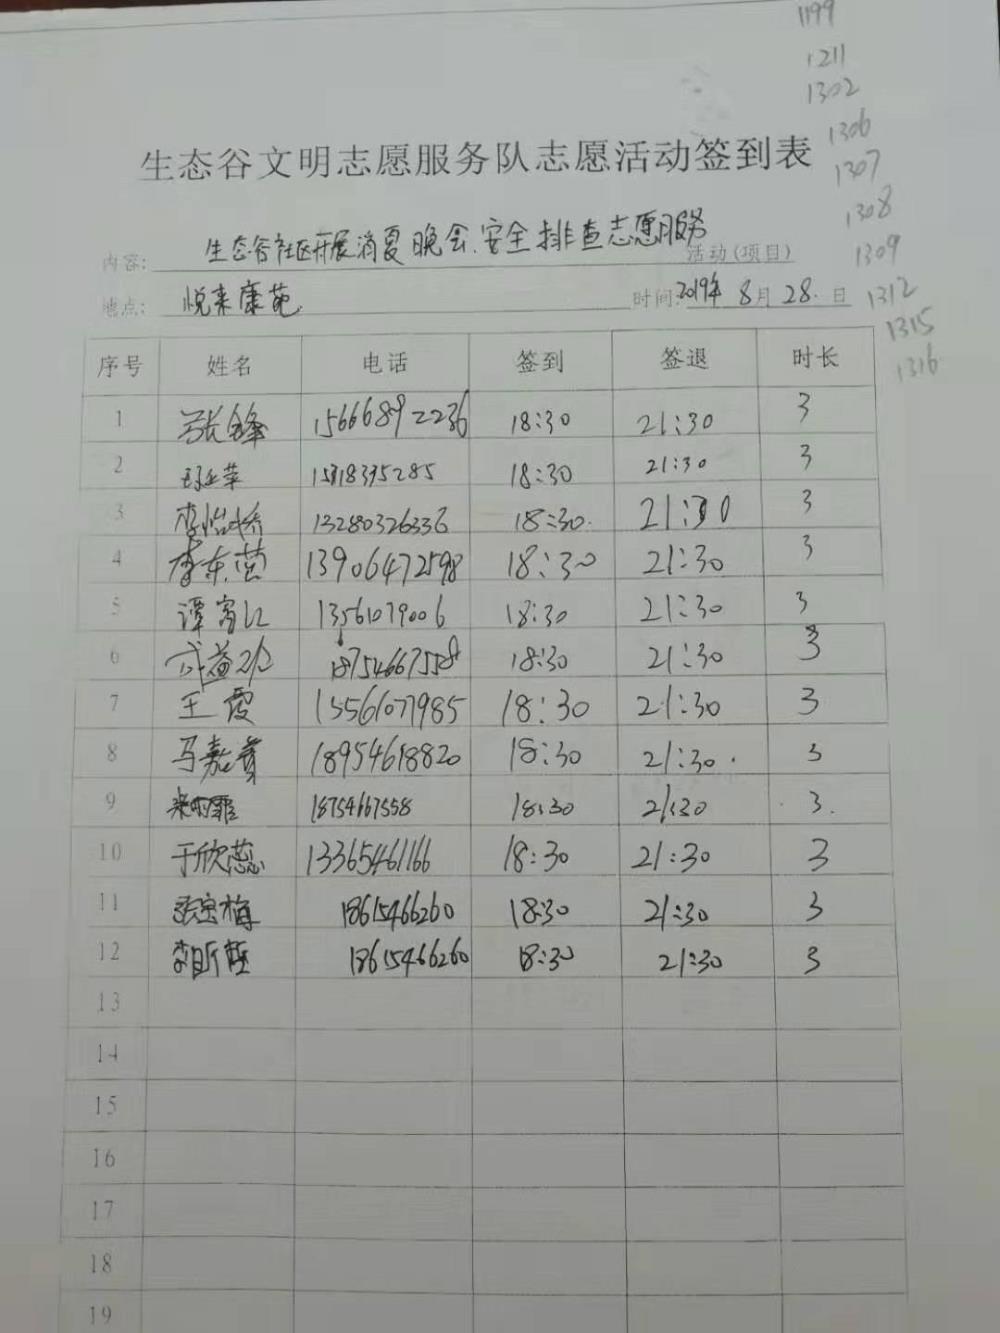 1199
1211
1302
1306
1307
1308
1309
1312
1315
1316
生态谷文明志愿服务队志愿活动签到表
内容: 生态谷社区开展消夏晚会、安全排查志愿服务 活动(项目)
地点: 悦来康苑 时间: 2019年 8月 28. 日
序号 姓名 电话 签到 签退 时长
1 张锋 15666892236 18:30 21:30 3
2 18:30 21:30 3
3 李怡 13280326336 18:30. 21:30 3
4 李东营 13906472598 18:30 21:30 3
5 谭 13561079006 18:30 21:30 3
6 18754667558 18:30 21:30 3
7 王霞 15561077985 18:30 21:30 3
8 马嘉 18954618820 18:30 21:30. 3
9 18754667558 18:30 21:30 3.
10 于欣蕊 13365461166 18:30 21:30 3
11 张宝梅 18615466260 18:30 21:30 3
12 李昕哲 18615466260 18:30 21:30 3
13
14
15
16
17
18
19